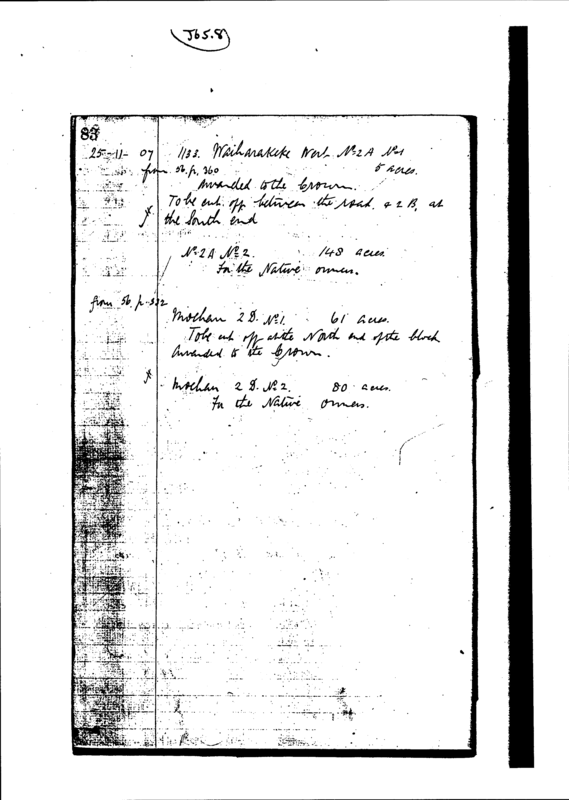 J65.8
83
25-11-07 1133. Waiharakeke West No 2A No 1
from 56. p. 360 5 acres.
Awarded to the Crown.
To be cut off between the road & 2B, at
the South end
No 2A No 2. 148 acres
For the Native owners.
from 56. p. 332
Moehau 2 D. No 1. 61 acres.
To be cut off at the North end of the block
Awarded to the Crown.
Moehau 2 D. No 2. 80 acres.
For the Native owners.